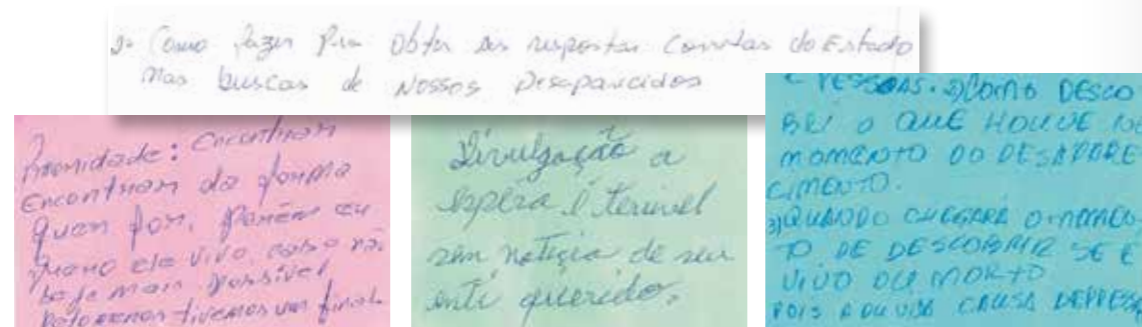 2- Como fazer pra obter as respostas corretas do Estado
nas buscas de Nossos Desaparecidos
Encontrar
Encontrar da forma
quen for, Porém eu
quero ele vivo, caso não
seja mais possível
pelo menos tivemos um final
Divulgação a
espera é terrivel
sem noticia de seu
ente querido.
E PESSOAS. 2) COMO DESCO
BRI O QUE HOUVE NO
MOMENTO DO DESAPARE
CIMENTO.
3) QUANDO CHEGARÁ O MOMEN
TO DE DESCOBRIR SE É
VIVO OU MORTO
POIS A DUVIDA CAUSA DEPRESS